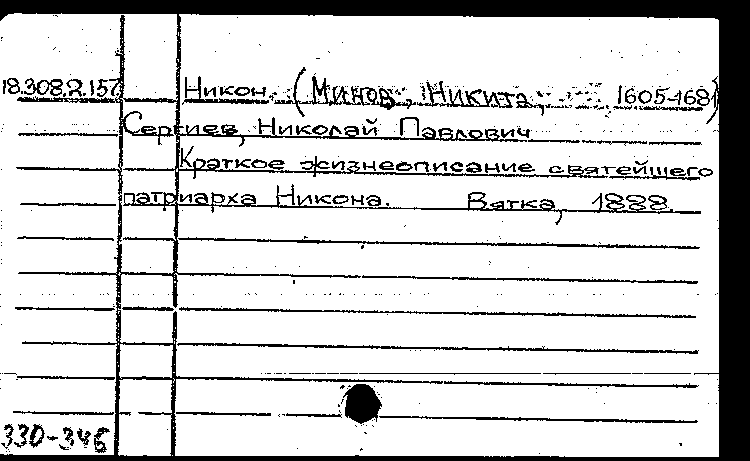 18.308.2.157 Никон. (Минов, Никита, 1605-1681)
Сергиев, Николай Павлович
Краткое жизнеописание святейшего
патриарха Никона. Вятка, 1888.
330-346